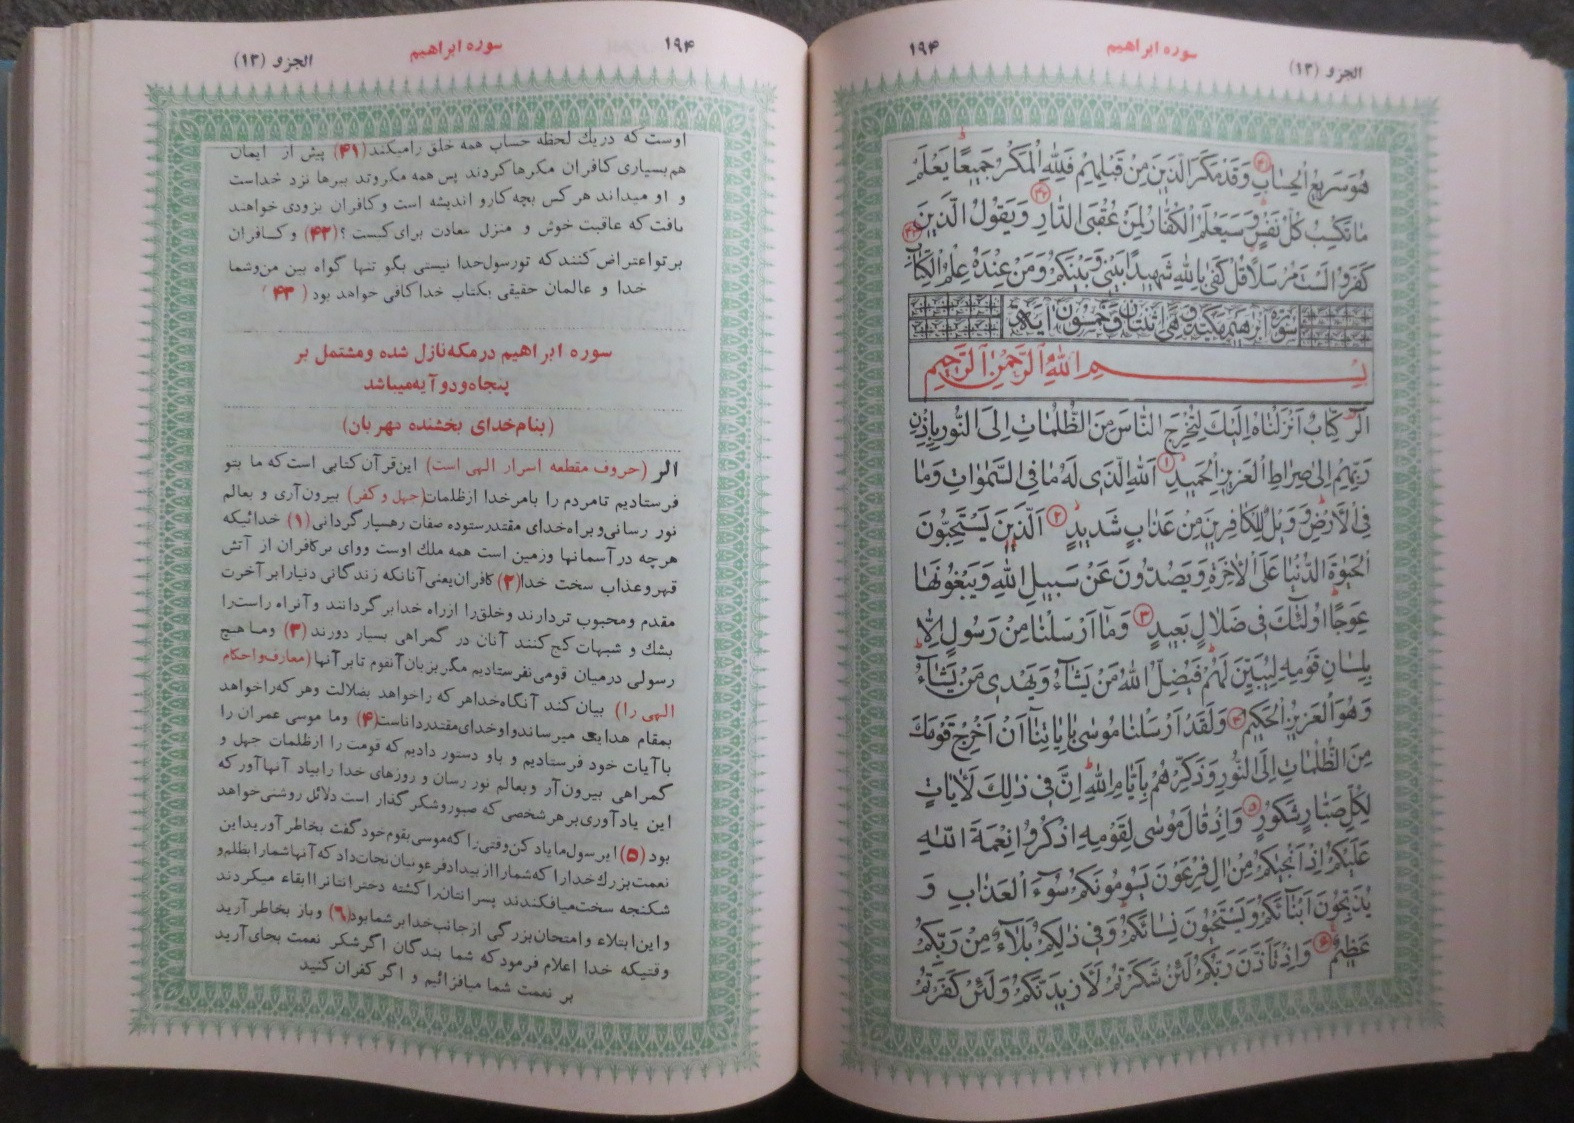 الجزو (۱۳)
سوره ابراهیم
۱۹۴
هُوَ سَرِيعُ الْحِسَابِ ۴۱ وَقَدْ مَكَرَ الَّذِينَ مِنْ قَبْلِهِمْ فَلِلَّهِ الْمَكْرُ جَمِيعًا يَعْلَمُ
مَا تَكْسِبُ كُلُّ نَفْسٍ وَسَيَعْلَمُ الْكُفَّارُ لِمَنْ عُقْبَى الدَّارِ ۴۲ وَيَقُولُ الَّذِينَ
كَفَرُوا لَسْتَ مُرْسَلًا قُلْ كَفَى بِاللَّهِ شَهِيدًا بَيْنِي وَبَيْنَكُمْ وَمَنْ عِنْدَهُ عِلْمُ الْكِتَابِ ۴۳
سورة ابرهيم مكية وهي اثنتان وخمسون آية
بِسْمِ اللَّهِ الرَّحْمٰنِ الرَّحِيمِ
الٓر كِتَابٌ أَنْزَلْنَاهُ إِلَيْكَ لِتُخْرِجَ النَّاسَ مِنَ الظُّلُمَاتِ إِلَى النُّورِ بِإِذْنِ
رَبِّهِمْ إِلَى صِرَاطِ الْعَزِيزِ الْحَمِيدِ ۱ اللَّهِ الَّذِي لَهُ مَا فِي السَّمٰوَاتِ وَمَا
فِي الْأَرْضِ وَوَيْلٌ لِلْكَافِرِينَ مِنْ عَذَابٍ شَدِيدٍ ۲ الَّذِينَ يَسْتَحِبُّونَ
الْحَيٰوةَ الدُّنْيَا عَلَى الْآخِرَةِ وَيَصُدُّونَ عَنْ سَبِيلِ اللَّهِ وَيَبْغُونَهَا
عِوَجًا أُولٰئِكَ فِي ضَلَالٍ بَعِيدٍ ۳ وَمَا أَرْسَلْنَا مِنْ رَسُولٍ إِلَّا
بِلِسَانِ قَوْمِهِ لِيُبَيِّنَ لَهُمْ فَيُضِلُّ اللَّهُ مَنْ يَشَاءُ وَيَهْدِي مَنْ يَشَاءُ
وَهُوَ الْعَزِيزُ الْحَكِيمُ ۴ وَلَقَدْ أَرْسَلْنَا مُوسَى بِآيَاتِنَا أَنْ أَخْرِجْ قَوْمَكَ
مِنَ الظُّلُمَاتِ إِلَى النُّورِ وَذَكِّرْهُمْ بِأَيَّامِ اللَّهِ إِنَّ فِي ذٰلِكَ لَآيَاتٍ
لِكُلِّ صَبَّارٍ شَكُورٍ ۵ وَإِذْ قَالَ مُوسَى لِقَوْمِهِ اذْكُرُوا نِعْمَةَ اللَّهِ
عَلَيْكُمْ إِذْ أَنْجٰيكُمْ مِنْ آلِ فِرْعَوْنَ يَسُومُونَكُمْ سُوءَ الْعَذَابِ وَ
يُذَبِّحُونَ أَبْنَاءَكُمْ وَيَسْتَحْيُونَ نِسَاءَكُمْ وَفِي ذٰلِكُمْ بَلَاءٌ مِنْ رَبِّكُمْ
عَظِيمٌ ۶ وَإِذْ تَأَذَّنَ رَبُّكُمْ لَئِنْ شَكَرْتُمْ لَأَزِيدَنَّكُمْ وَلَئِنْ كَفَرْتُمْ
الجزو (۱۳)
سوره ابراهیم
۱۹۴
اوست که دریك لحظه حساب همه خلق رامیکند (۴۱) پیش از ایمان
هم بسیاری کافران مکرها کردند پس همه مکروتد بیرها نزد خداست
و او میداند هر کس بچه کارو اندیشه است و کافران بزودی خواهند
یافت که عاقبت خوش و منزل سعادت برای کیست ؟ (۴۲) و کافران
بر تو اعتراض کنند که تو رسول خدا نیستی بگو تنها گواه بین من وشما
خدا و عالمان حقیقی بکتاب خدا کافی خواهد بود (۴۳)
سوره ابراهیم در مکه نازل شده و مشتمل بر
پنجاه و دو آیه میباشد
(بنام خدای بخشنده مهربان)
الر (حروف مقطعه اسرار الهی است) این قرآن کتابی است که ما بتو
فرستادیم تامردم را بامرخدا ازظلمات(جهل و کفر) بیرون آری و بعالم
نور رسانی و براه خدای مقتدر ستوده صفات رهسپار گردانی (۱) خدائیکه
هرچه در آسمانها وزمین است همه ملك اوست ووای بر کافران از آتش
قهر وعذاب سخت خدا(۲) کافران یعنی آنانکه زندگانی دنیارابر آخرت
مقدم ومحبوب تردارند وخلق را ازراه خدابرگردانند و آنراه راست را
بشك و شبهات کج کنند آنان در گمراهی بسیار دورند (۳) وما هیچ
رسولی درمیان قومی نفرستادیم مگر بزبان آنقوم تا بر آنها (معارف و احکام
الهی را) بیان کند آنگاه خداهر که راخواهد بضلالت وهر که راخواهد
بمقام هدایت میرساند واو خدای مقتدر داناست(۴) وما موسی عمران را
با آیات خود فرستادیم و باو دستور دادیم که قومت را ازظلمات جهل و
گمراهی بیرون آر وبعالم نور رسان و روزهای خدا را بیاد آنها آور که
این یاد آوری بر هر شخصی که صبور و شکر گذار است دلائل روشنی خواهد
بود (۵) ای رسول ما یاد کن وقتی را که موسی بقوم خود گفت بخاطر آورید این
نعمت بزرك خدارا که شمارا از بیداد فرعونیان نجات داد که آنها شمارا بظلم و
شکنجه سخت میافکندند پسرانتان را کشته دخترانتانرا ابقاء میکردند
واین ابتلاء وامتحان بزرگی از جانب خدا بر شما بود(۶) وباز بخاطر آرید
وقتیکه خدا اعلام فرمود که شما بندگان اگر شکر نعمت بجای آرید
بر نعمت شما میافزائیم و اگر کفران کنید